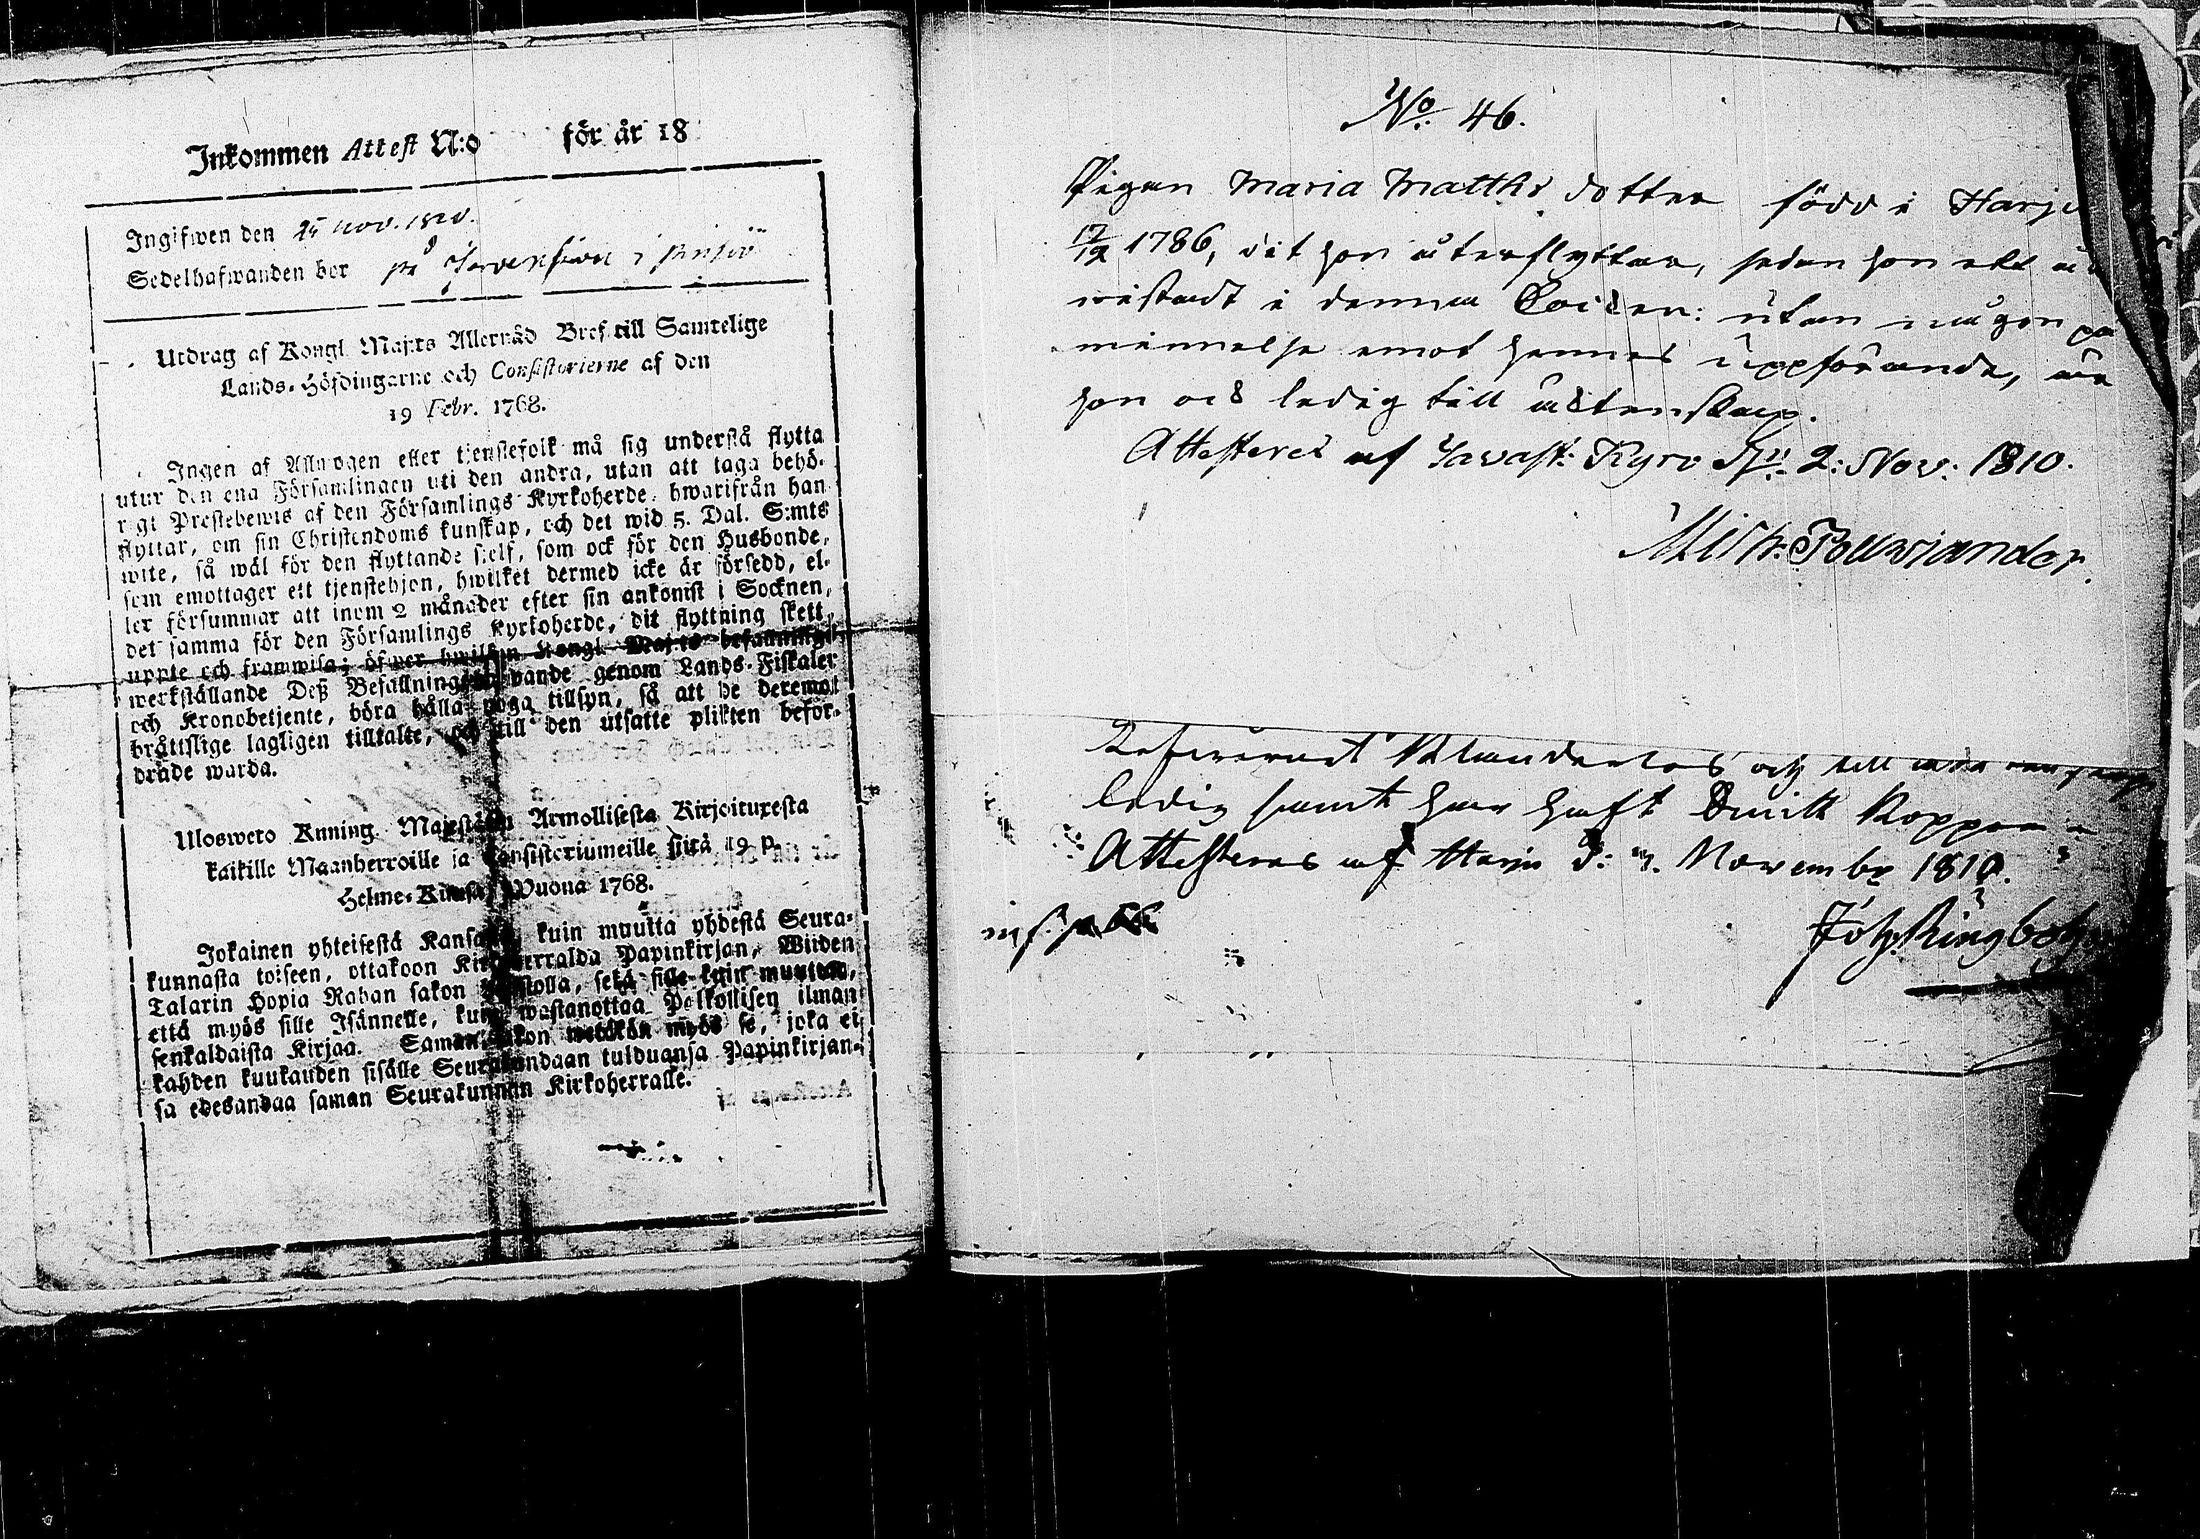 Inkommen Attest N:o för år 18
Ingifwen den 25 nov. 1810.
Sedelhafwanden bor på i
Utdrag af Kongl. Maj:ts Allernåd Bref till Samtelige
Lands-Höfdingarne och Consistorierne af den
19 Febr. 1768.
Ingen af Allmogen eller tjenstefolk må sig understå flytta
utur den ena Församlingen uti den andra, utan att taga behö-
rigt Prestebewis af den Församlings Kyrkoherde, hwarifrån han
flyttar, om sin Christendoms kunskap, och det wid 5. Dal. S:mts
wite, så wäl för den flyttande sielf, som ock för den Husbonde,
som emottager ett tjenstehjon, hwilket dermed icke är försedd, el-
ler försummar att inom 2 månader efter sin ankomst i Socknen,
det samma för den Församlings Kyrkoherde, dit flyttning skett,
uppte och framwisa; öfwer hwilken Kongl. Maj:ts befallning
werkställande Deß Befallningshafwande genom Lands-Fiskaler
och Kronobetjente, böra hålla noga tillsyn, så att de deremot
bråttslige lagligen tilltalte, och till den utsatte plikten befor-
dråde warda.
Ulosweto Kuning. Majestätin Armollisesta Kirjoituxesta
kaikille Maanherroille ja Consistoriumeille siitä 19 p.
Helme-Kuusa Wuona 1768.
Jokainen yhteisestä Kansasta, kuin muutta yhdestä Seura-
kunnasta toiseen, ottakoon Kirkoherralda Papinkirjan, Wiiden
Talarin Hopia Rahan sakon uhkolla, sekä sille kuin muuttaa,
että myös sille Isännelle, kuin wastanottaa Palkollisen ilman
senkaldaista Kirjaa. Saman sakon wetäkön myös se, joka ei
kahden kuukauden sisälle Seurakundaan tulduansa Papinkirjan-
sa edesandaa saman Seurakunnan Kirkoherralle.
No: 46.
Pigan Maria Matths dotter född i Harju
17/12 1786, dit hon återflyttar, sedan hon ett år
wistadt i denna utan någon på
minnelse emot hennes uppförande, är
hon ock ledig till ächtenskap.
Attesteret af Tavast: Kyro d. 2: Nov: 1810.
Mich: Polviander.
Refererad Klanderlös och till
ledig samt har haft Koppor
Attesteras af Harju d: Novembr 1810.